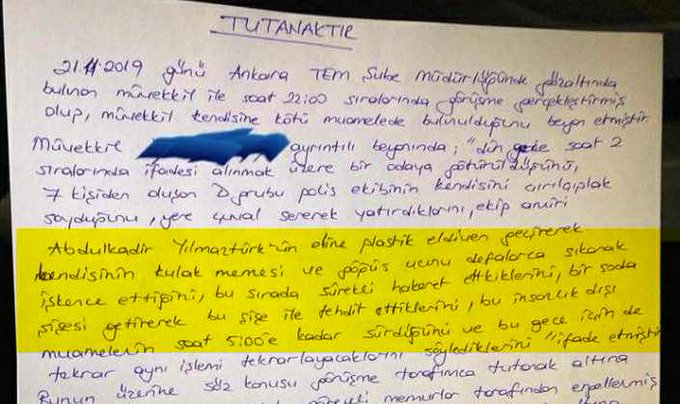 TUTANAKTIR
21.11.2019 günü Ankara TEM Şube Müdürlüğünde gözaltında
bulunan müvekkil ile saat 22:00 sıralarında görüşme gerçekleştirmiş
olup, müvekkil kendisine kötü muamelede bulunulduğunu beyan etmiştir
Müvekkil ayrıntılı beyanında; "dün gece saat 2
sıralarında ifadesi alınmak üzere bir odaya götürüldüğünü,
7 kişiden oluşan D grubu polis ekibinin kendisini çırılçıplak
soyduğunu, yere çuval sererek yatırdıklarını, ekip amiri
Abdulkadir Yılmaztürk'ün eline plastik eldiven geçirerek
kendisinin kulak memesi ve göğüs ucunu defalarca sıkarak
işkence ettiğini, bu sırada sürekli hakaret ettiklerini, bir soda
şişesi getirerek bu şişe ile tehdit ettiklerini, bu insanlık dışı
muamelenin saat 5:00'e kadar sürdüğünü ve bu gece için de
tekrar aynı işlemi tekrarlayacaklarını söylediklerini" ifade etmiştir
Bunun üzerine söz konusu görüşme tarafımca tutanak altına
memurlar tarafından engellenmiş